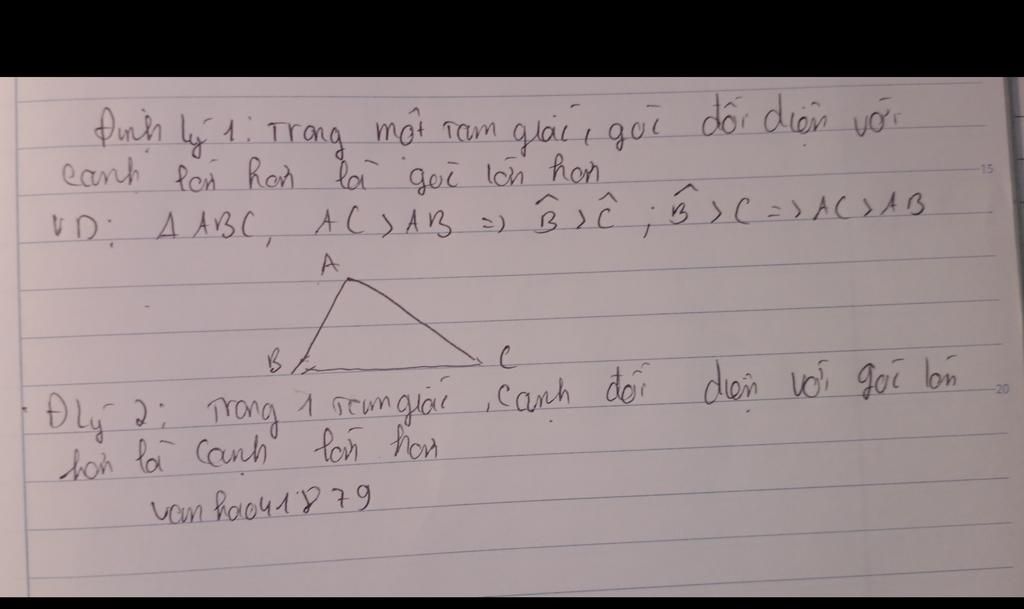 Định lý 1: Trong một tam giác, góc đối diện với
cạnh lớn hơn là góc lớn hơn
VD: Δ ABC, AC > AB => B̂ > Ĉ ; B̂ > C => AC > AB
A
B C
ĐLý 2: Trong 1 tam giác, cạnh đối diện với góc lớn
hơn là cạnh lớn hơn
vanhao41879
15
20